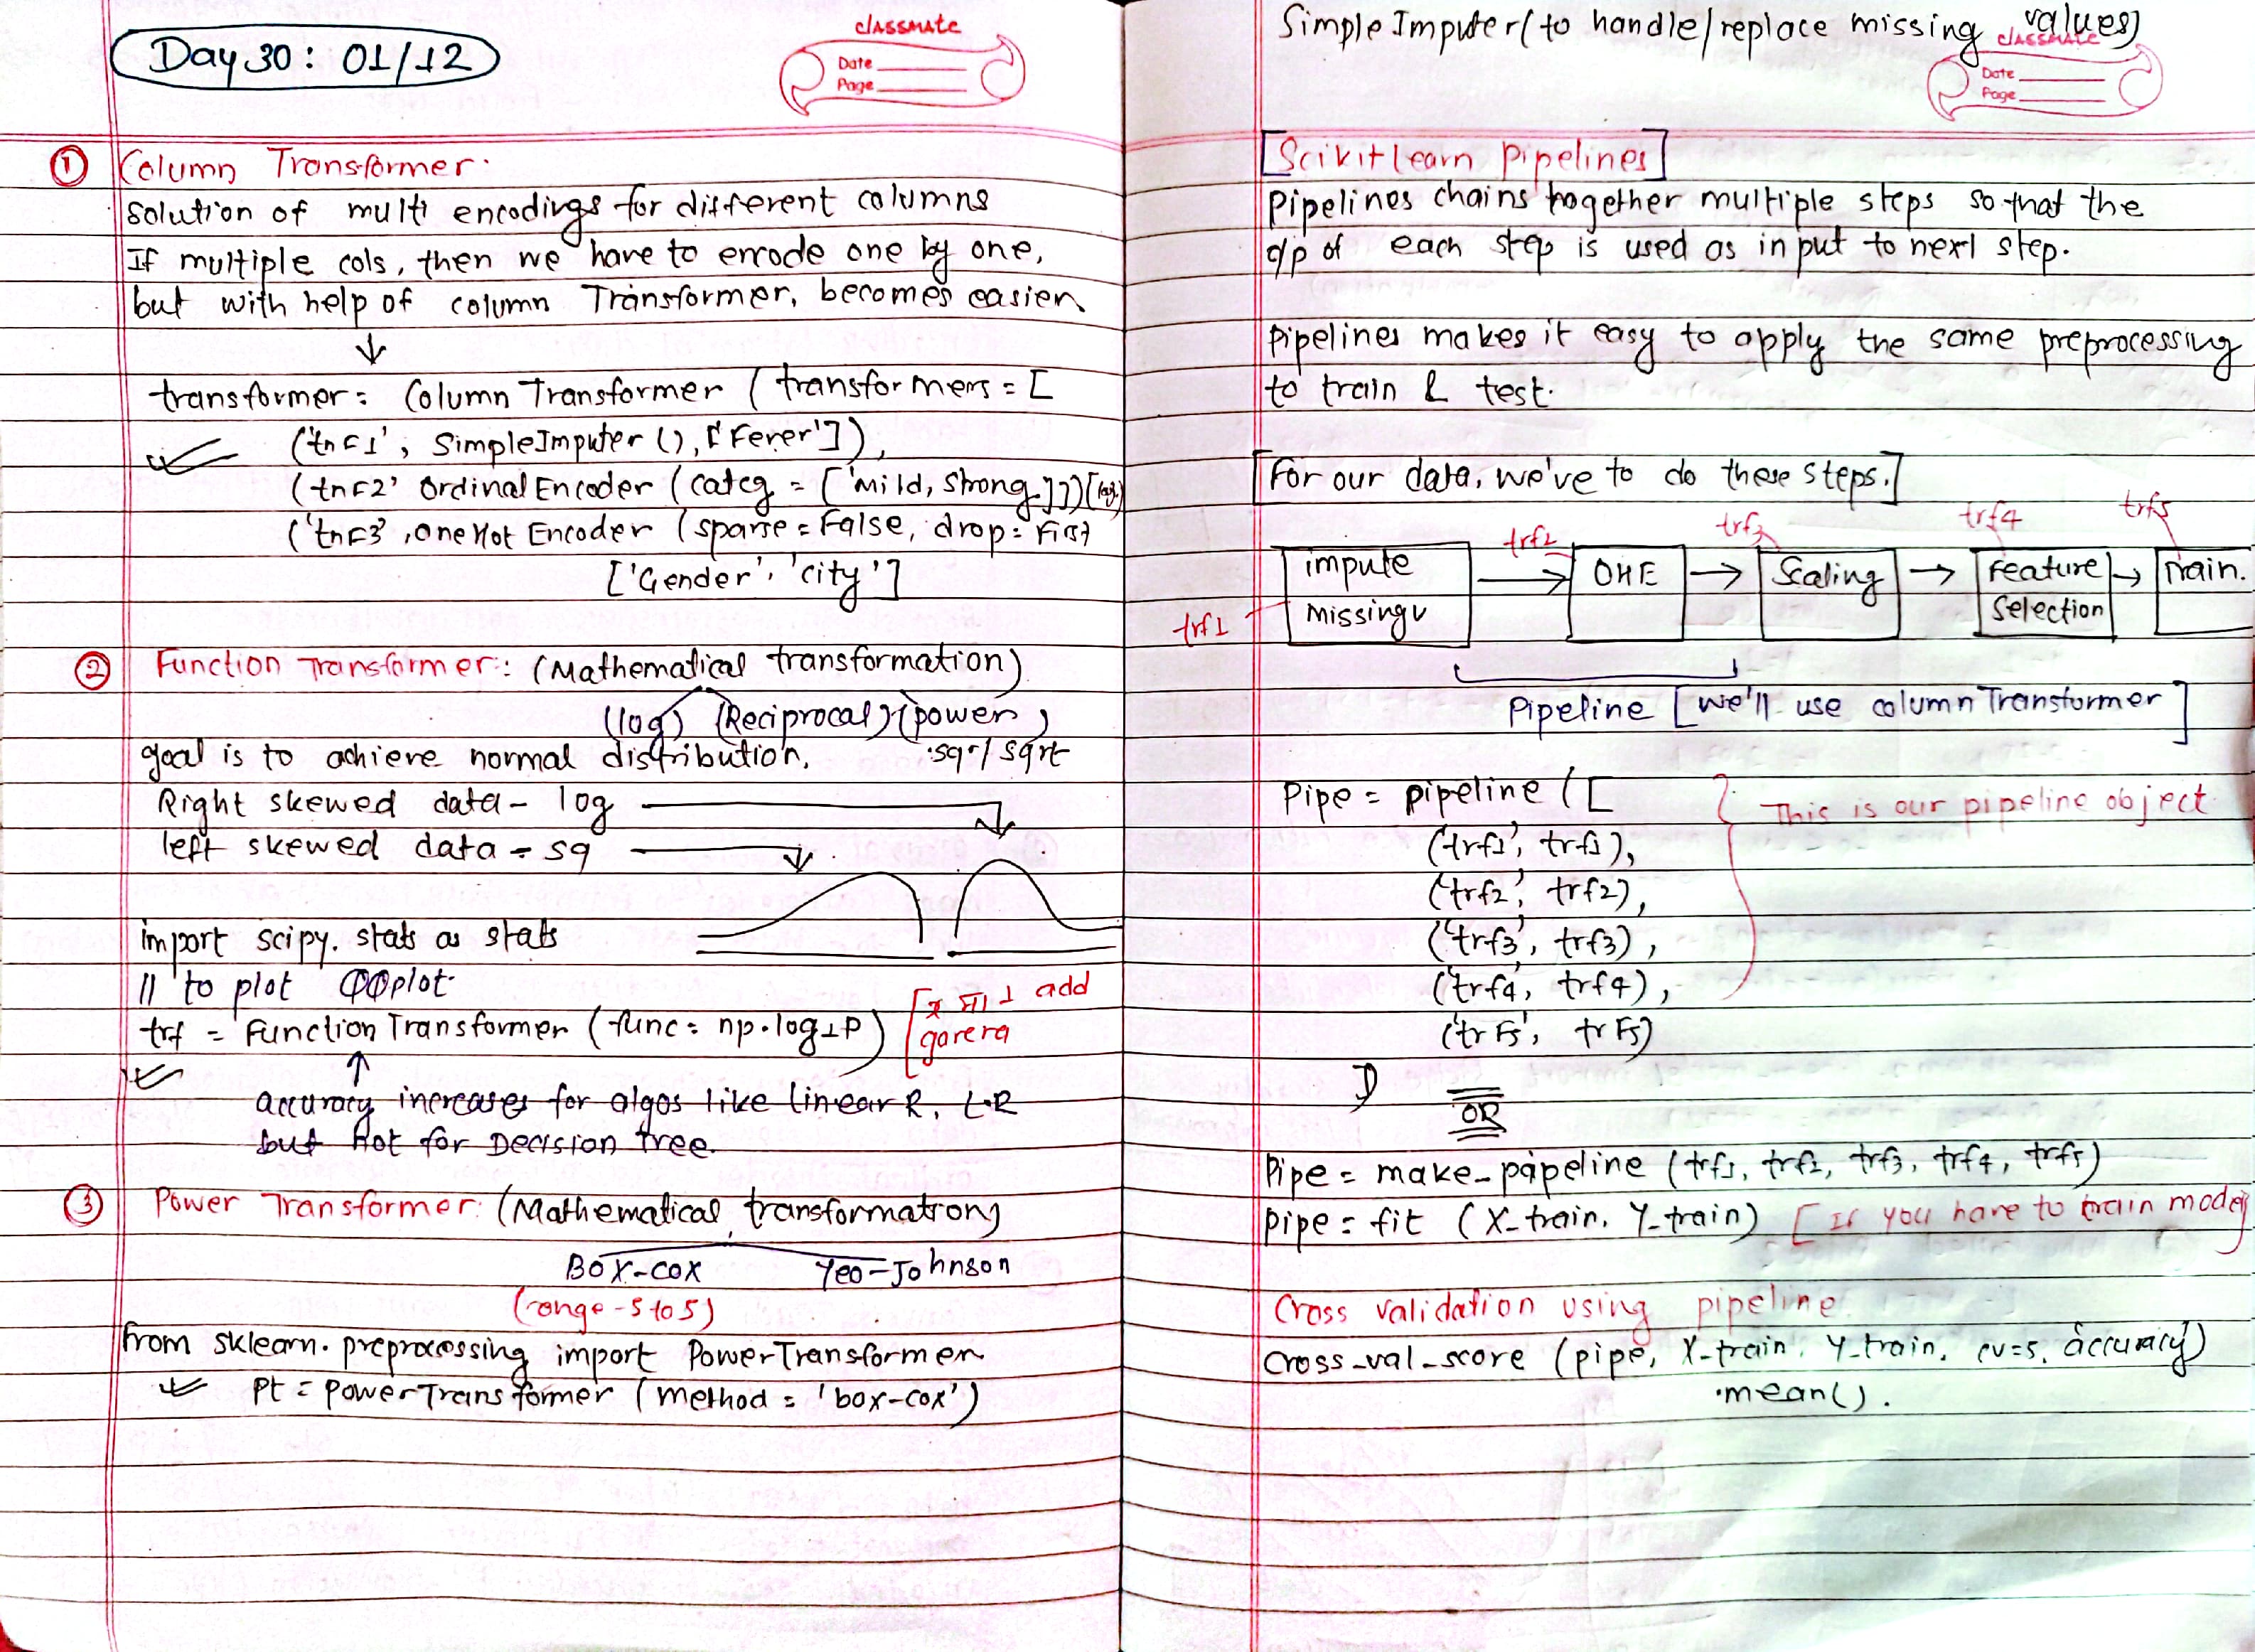 Day 30: 01/12
classmate
Date
Page
① Column Transformer.
Solution of multi encodings for different columns
If multiple cols, then we have to encode one by one,
but with help of column Transformer, becomes easier.
transformer = Column Transformer ( transformers = [
('tnf1', SimpleImputer (), ['Fever']),
(tnf2' Ordinal Encoder ( categ = ['mild, strong]])
('tnf3' , One Hot Encoder ( sparse = False, drop = First
['Gender', 'city']
② Function Transformer: (Mathematical transformation)
(log) (Reciprocal) (power)
goal is to achieve normal distribution. sqr/sqrt
Right skewed data - log
left skewed data - sq
import scipy. stats as stats
// to plot QQplot.
trf = Function Transformer ( func = np.log1P) [x मा 1 add
garera
accuracy increases for algos like linear R, L.R
but not for Decision Tree.
③ Power Transformer: (Mathematical transformation)
Box-cox Yeo-Johnson
(range -5 to 5)
from sklearn. preprocessing import PowerTransformer
Pt = powerTransformer ( method = 'box-cox')
Simple Imputer ( to handle/replace missing values)
classmate
Date
Page
[Scikit learn Pipelines]
Pipelines chains together multiple steps so that the
o/p of each step is used as input to next step.
Pipelines makes it easy to apply the same preprocessing
to train & test.
[For our data, we've to do these steps.]
trf2 trf3 trf4 trf5
impute OHE Scaling Feature Train.
missing v Selection
trf1
Pipeline [we'll use columnTransformer]
Pipe = pipeline ( [ This is our pipeline object
('trf1', trf1),
('trf2', trf2),
('trf3', trf3),
('trf4', trf4),
('trF5', trF5)
])
OR
Pipe = make_pipeline (trf1, trf2, trf3, trf4, trf5)
pipe = fit (X_train, Y_train) [If you have to train model]
Cross validation using pipeline
cross_val_score (pipe, X-train, Y-train, cv=5, accuracy)
.mean().